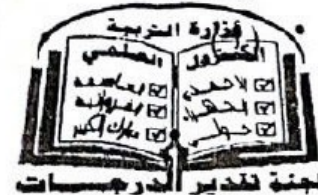 وزارة التربية
الكنترول العلمي
☑ الأحمدي ☑ العاصمة
☑ الجهراء ☑ الفروانية
☑ حولي ☑ مبارك الكبير
لجنة تقدير الدرجــــات